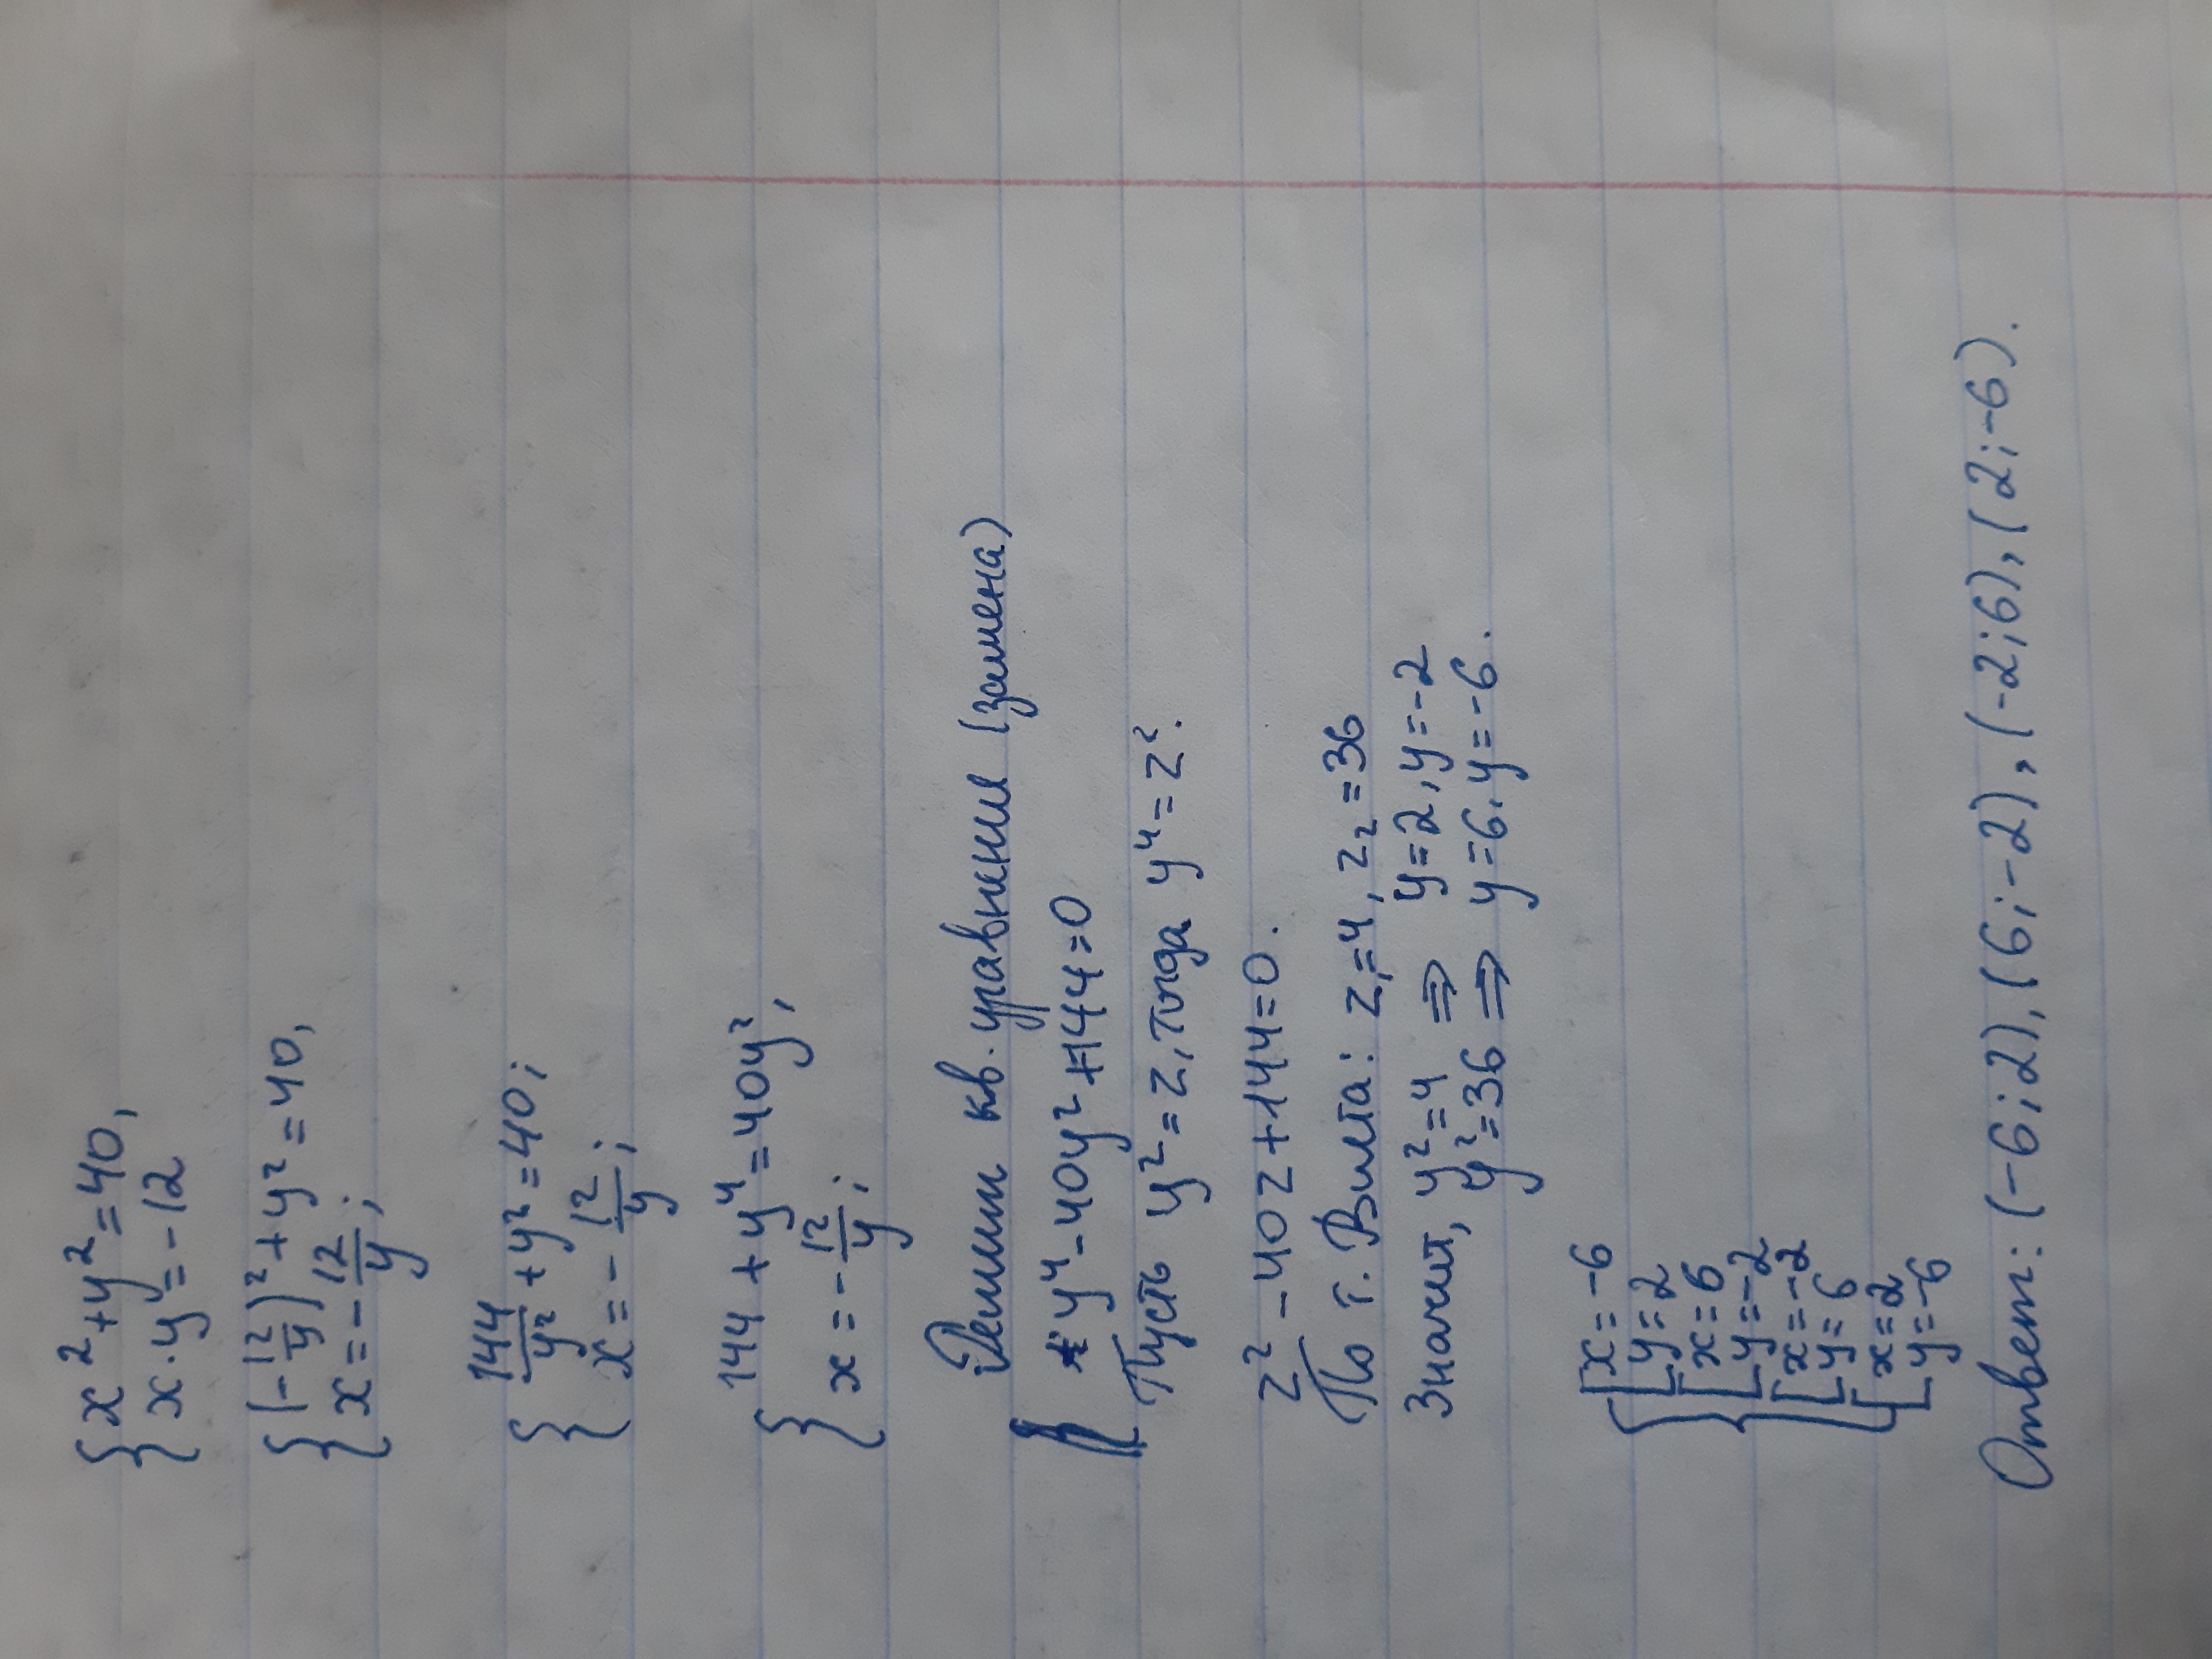 { x² + y² = 40,
x · y = -12
{ (-12/y)² + y² = 40,
x = -12/y;
{ 144/y² + y² = 40;
x = -12/y;
{ 144 + y⁴ = 40y²,
x = -12/y;
Решим кв. уравнение (замена)
y⁴ - 40y² + 144 = 0
Пусть y² = z, тогда y⁴ = z².
z² - 40z + 144 = 0.
По т. Виета: z₁ = 4, z₂ = 36
Значит, y² = 4 ⇒ y = 2, y = -2
y² = 36 ⇒ y = 6, y = -6.
{ [ x = -6
y = 2
[ x = 6
y = -2
{ [ x = -2
y = 6
[ x = 2
y = -6
Ответ: (-6; 2), (6; -2), (-2; 6), (2; -6).